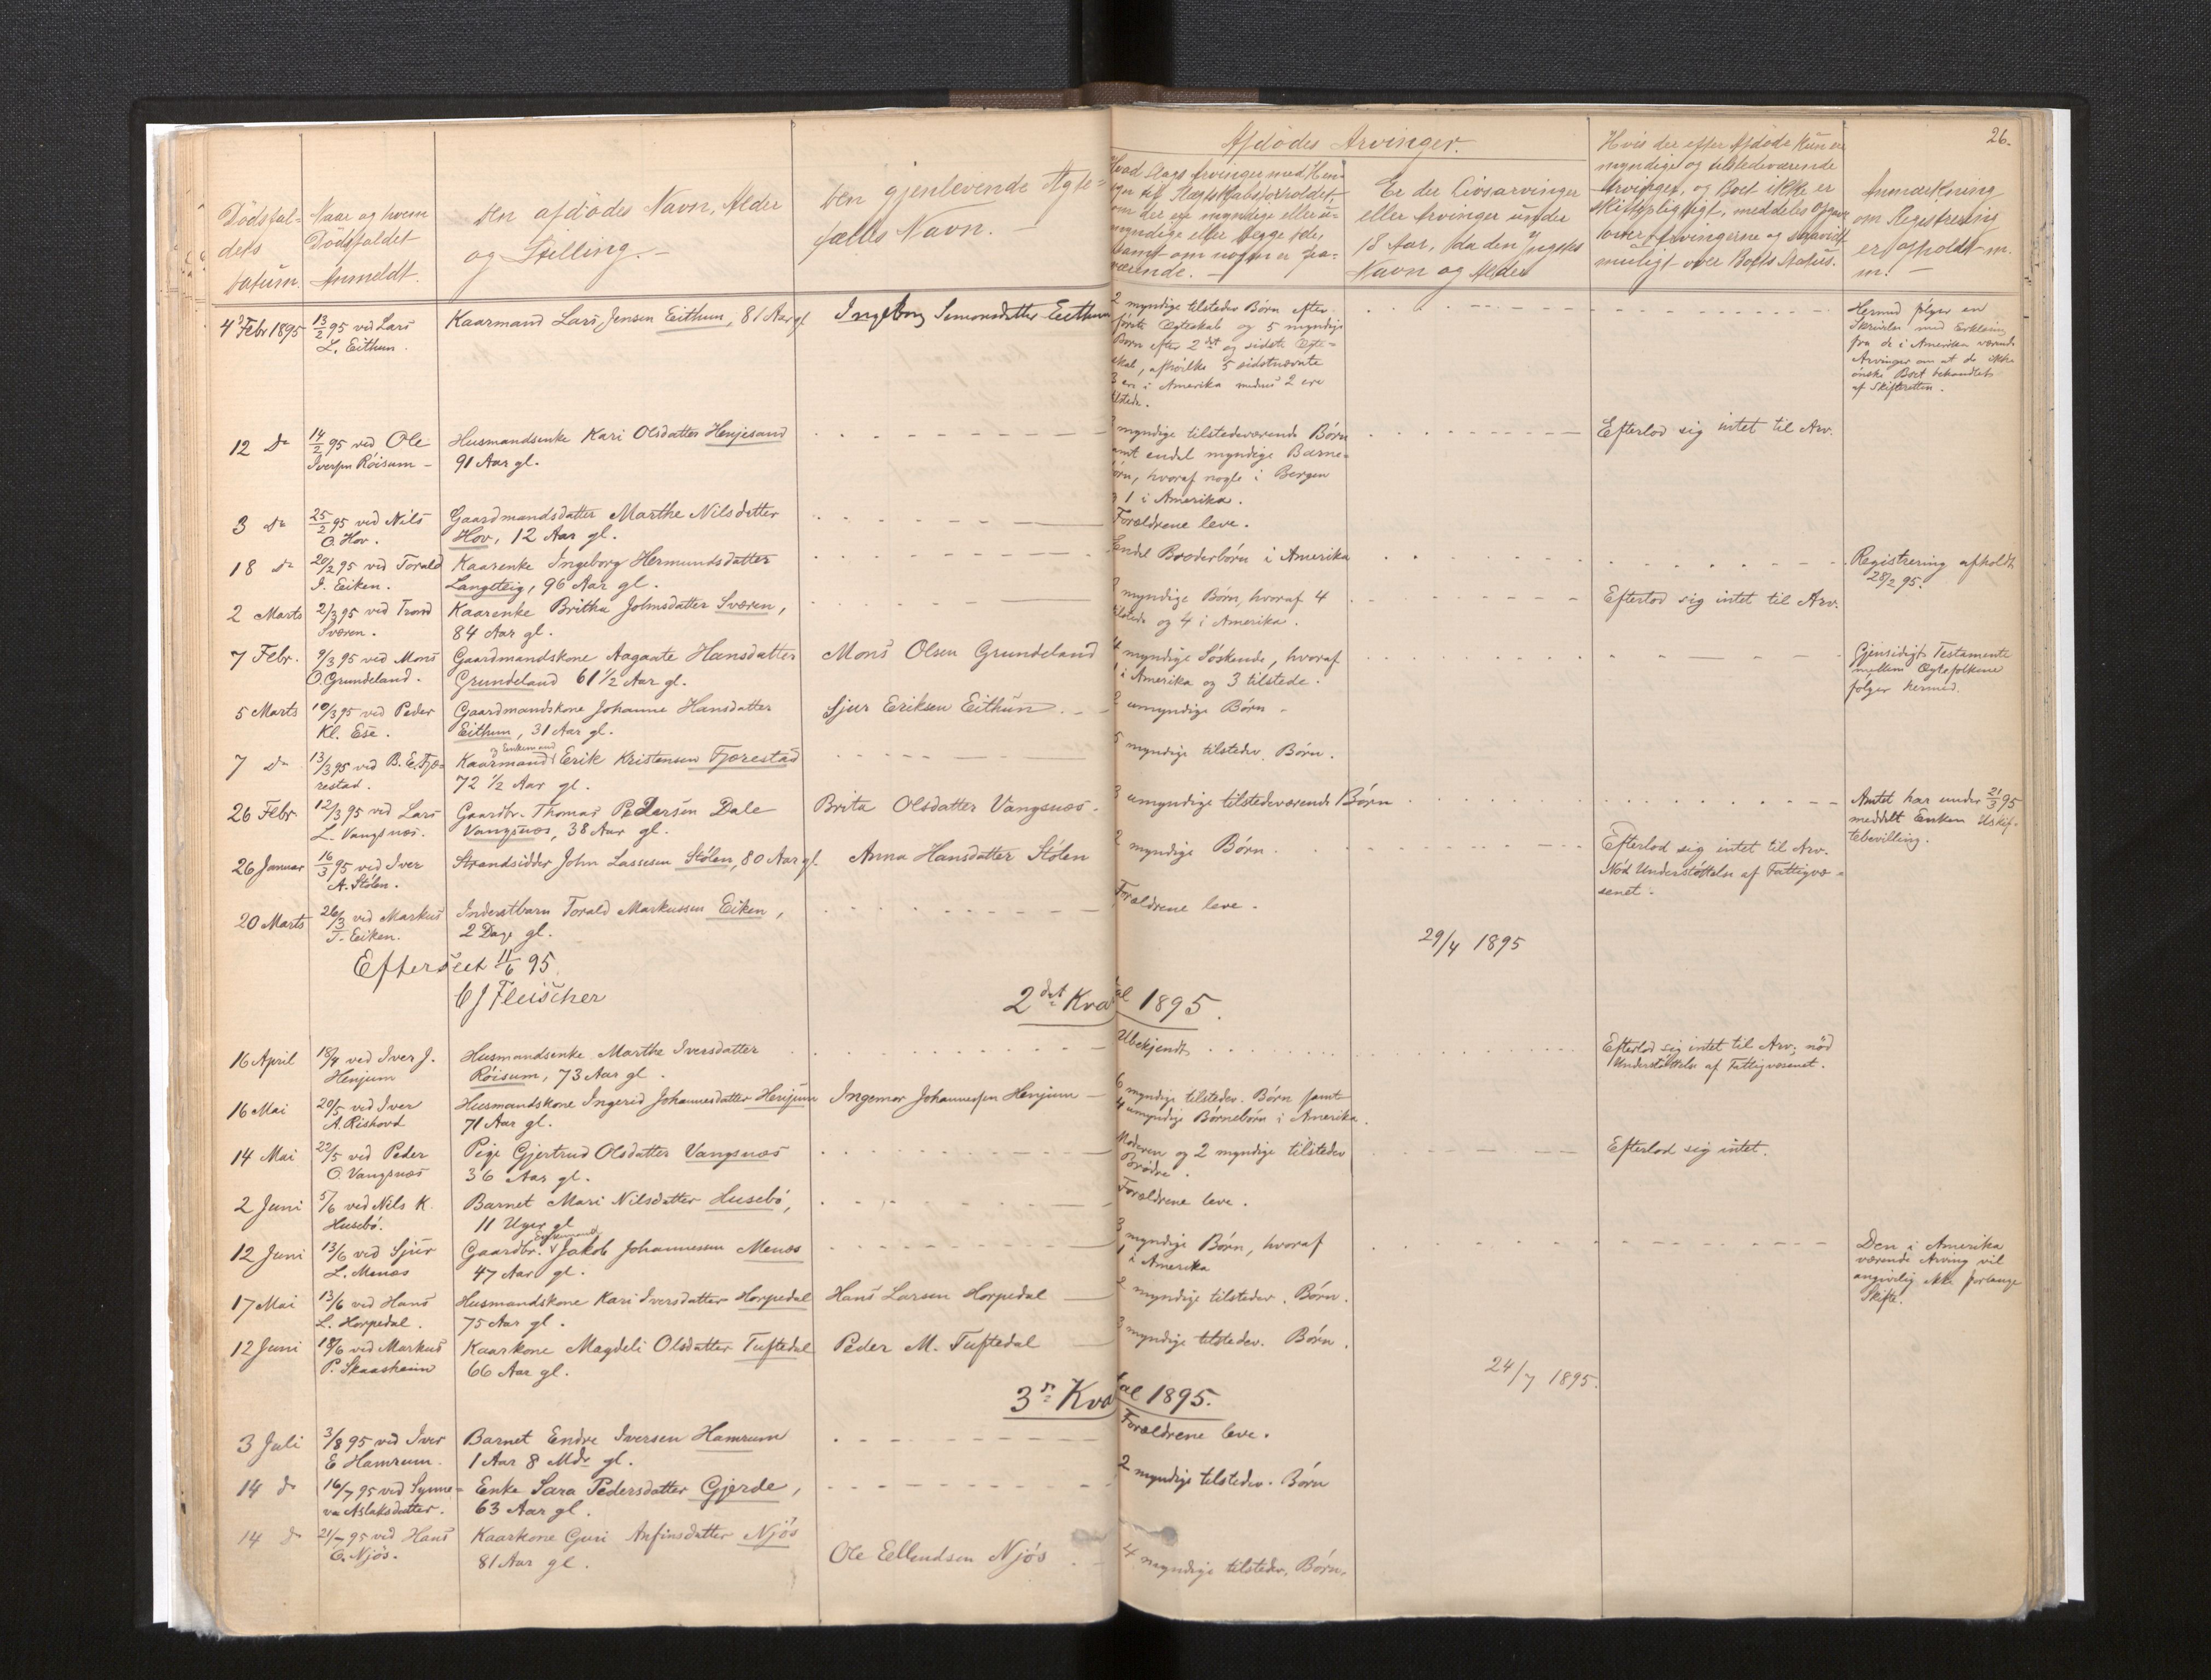 26.
Dödsfal-
dets
Datum.
Naar og hvem
Dödsfaldet
Anmeldt.
Den afdödes Navn, Alder
og Stilling. –
Den gjenlevende Ægte-
fælles Navn. –
Afdödes Arvinger.
Hvad Slags Arvinger med Hen-
syn til Slægtskabsforholdet,
om der ere myndige eller u-
myndige eller begge Dele,
samt om nogen er fra-
værende. –
Er der Livsarvinger
eller Arvinger under
18 Aar, da den Yngstes
Navn og Alder
Hvis der efter Afdöde kun er
myndige og tilstedeværende
Arvinger, og Boet ikke er
skiftepligtigt, meddeles Opgave
over Arvingerne og saavidt
muligt over Boets Status.
Anmærkning
om Registrering
er afholdt m.
m. –
4d Febr 1895
13/2 95 ved Lars
L. Eithun.
Kaarmand Lars Jensen Eithun, 81 Aar gl
Ingeborg Simonsdatter Eithun
2 myndige tilstedev Børn efter
første Ægteskab og 5 myndige
Børn efter 2det og sidste Ægte-
skab, af hvilke 5 sidstnævnte
3 ere i Amerika medens 2 ere
tilstede.
Hermed følger en
Skrivelse med Erklæring
fra de i Amerika værende
Arvinger om at de ikke
ønske Boet behandlet
af Skifteretten.
12 do
14/2 95 ved Ole
Iversen Röisum –
Husmandsenke Kari Olsdatter Henjesand
91 Aar gl.
myndige tilstedeværende Børn
samt endel myndige Barne-
börn, hvoraf nogle i Bergen
og 1 i Amerika.
Efterlod sig intet til Arv.
3 do
25/2 95 ved Nils
O. Hov.
Gaardmandsdatter Marthe Nilsdatter
Hov, 12 Aar gl.
Forældrene leve.
18 do
20/2 95 ved Torald
I. Eiken.
Kaarenke Ingeborg Hermundsdatter
Langteig, 96 Aar gl.
Endel Broderbörn i Amerika
Registrering afholdt
28/2 95.
2 Marts
2/3 95 ved Trond
Sværen.
Kaarenke Britha Johnsdatter Sværen,
84 Aar gl.
myndige Børn, hvoraf 4
tilstede og 4 i Amerika.
Efterlod sig intet til Arv.
7 Febr.
9/3 95 ved Mons
O. Grundeland.
Gaardmandskone Aagaate Hansdatter
Grundeland 61 1/2 Aar gl.
Mons Olsen Grundeland
4 myndige Söskende, hvoraf
1 i Amerika og 3 tilstede.
Gjensidigt Testamente
mellem Ægtefolkene
følger hermed.
5 Marts
10/3 95 ved Peder
Kl. Ese.
Gaardmandskone Johanne Hansdatter
Eithun, 31 Aar gl.
Sjur Eriksen Eithun
2 umyndige Børn –
7 do
13/3 95 ved B. E. Fjæ-
restad.
og Enkemand
Kaarmand Erik Kristensen Fjærestad
72 1/2 Aar gl.
5 myndige tilstedev. Børn.
26 Febr
12/3 95 ved Lars
L. Vangsnæs.
Gaardbr. Thomas Pedersen Dale
Vangsnæs, 38 Aar gl.
Brita Olsdatter Vangsnæs.
3 umyndige tilstedeværende Børn
Amtet har under 21/3 95
meddelt Enken Uskif-
tebevilling.
26 Januar
16/3 95 ved Iver
A. Stölen.
Strandsidder John Lassesen Stölen, 80 Aar gl.
Anna Hansdatter Stölen
2 myndige Börn.
Efterlod sig intet til Arv.
Nöd Understöttelse af Fattigvæ-
senet.
20 Marts
26/3 ved Markus
T. Eiken.
Inderstbarn Torald Markussen Eiken,
2 Dage gl.
Forældrene leve.
29/4 1895
Efterseet 11/6 95.
C J Fleischer
2det Kvartal 1895.
16 April
18/4 ved Iver J.
Henjum
Husmandsenke Marthe Iversdatter
Röisum, 73 Aar gl.
Ubekjendt
Efterlod sig intet til Arv; nöd
Understöttelse af Fattigvæsenet.
16 Mai
20/5 ved Iver
A. Rishovd
Husmandskone Ingerid Johannesdatter Henjum
71 Aar gl.
Ingemar Johannessen Henjum –
6 myndige tilstedev. Börn samt
4 umyndige Börnebörn i Amerika.
14 Mai
22/5 ved Peder
O. Vangsnæs
Pige Gjertrud Olsdatter Vangsnæs
36 Aar gl.
Moderen og 2 myndige tilstedev
Brödre.
Efterlod sig intet.
2 Juni
5/6 ved Nils K.
Husebö.
Barnet Mari Nilsdatter Husebö,
11 Uger gl
Forældrene leve.
12 Juni
13/6 ved Sjur
L. Menæs
Enkemand
Gaardbr. Jakob Johannessen Menæs
47 Aar gl.
3 myndige Børn, hvoraf
1 i Amerika
Den i Amerika
værende Arving vil
angivelig ikke forlange
Skifte.
17 Mai
13/6 ved Hans
L. Horpedal.
Husmandskone Kari Iversdatter Horpedal
75 Aar gl.
Hans Larsen Horpedal
2 myndige tilstedev. Börn.
12 Juni
18/6 ved Markus
P. Skaasheim
Kaarkone Magdeli Olsdatter Tuftedal
66 Aar gl.
Peder M. Tuftedal
3 myndige tilstedev. Börn.
24/7 1895.
3die Kvartal 1895.
3 Juli
3/8 95 ved Iver
E Hamrum.
Barnet Endre Iversen Hamrum
1 Aar 8 Mdr gl.
Forældrene leve.
14 do
16/7 95 ved Synne-
va Aslaksdatter.
Enke Sara Pedersdatter Gjerde,
63 Aar gl.
2 myndige tilstedev. Børn
14 do
21/7 95 ved Hans
O. Njös.
Kaarkone Guri Anfinsdatter Njös
81 Aar gl.
Ole Ellendsen Njös
4 myndige tilstedev. Börn.